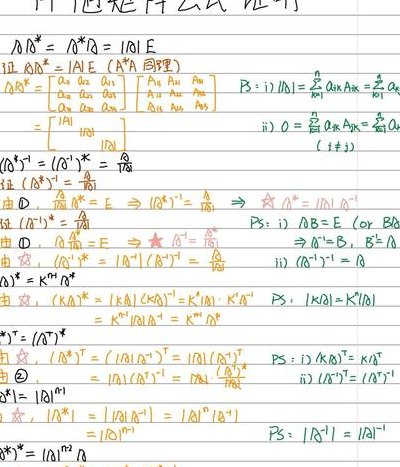 AA* = A*A = |A|E
证 AA* = |A|E (A*A 同理)
AA* = [a₁₁ a₁₂ a₁₃ / a₂₁ a₂₂ a₂₃ / a₃₁ a₃₂ a₃₃] [A₁₁ A₂₁ A₃₁ / A₁₂ A₂₂ A₃₂ / A₁₃ A₂₃ A₃₃] PS: i) |A| = Σₖ₌₁ⁿ aᵢₖAᵢₖ = Σₖ₌₁ⁿ
= [|A| |A| |A|] ii) 0 = Σₖ₌₁ⁿ aᵢₖAⱼₖ = Σₖ₌₁ⁿ
(i≠j)
(A*)⁻¹ = (A⁻¹)* = A/|A|
证 (A*)⁻¹ = A/|A|
由 ①, A/|A| A* = E ⇒ (A*)⁻¹ = A/|A| ⇒ ☆ A* = |A|A⁻¹
证 (A⁻¹)* = A/|A| PS: i) AB=E (or BA
由 ①, A A*/|A| = E ⇒ ★ A⁻¹ = A*/|A| ⇒ A⁻¹=B, B⁻¹=A
由 ☆, (A⁻¹)* = |A⁻¹|(A⁻¹)⁻¹ = A/|A| ii) (A⁻¹)⁻¹ = A
A)* = Kⁿ⁻¹A*
由 ☆, (KA)* = |KA|(KA)⁻¹ = Kⁿ|A|·K⁻¹A⁻¹ PS: |KA| = Kⁿ|A|
= Kⁿ⁻¹|A|A⁻¹ = Kⁿ⁻¹A*
*)ᵀ = (Aᵀ)*
由 ☆, (A*)ᵀ = (|A|A⁻¹)ᵀ = |A|(A⁻¹)ᵀ PS: i) (KA)ᵀ = KAᵀ
由 ②, = |A|(Aᵀ)⁻¹ = |A| (Aᵀ)*/|A| ii) (A⁻¹)ᵀ = (Aᵀ)⁻¹
A*| = |A|ⁿ⁻¹
☆, |A*| = ||A|A⁻¹| = |A|ⁿ|A⁻¹|
= |A|ⁿ⁻¹ PS: |A⁻¹| = |A|⁻¹
*)* = |A|ⁿ⁻²A